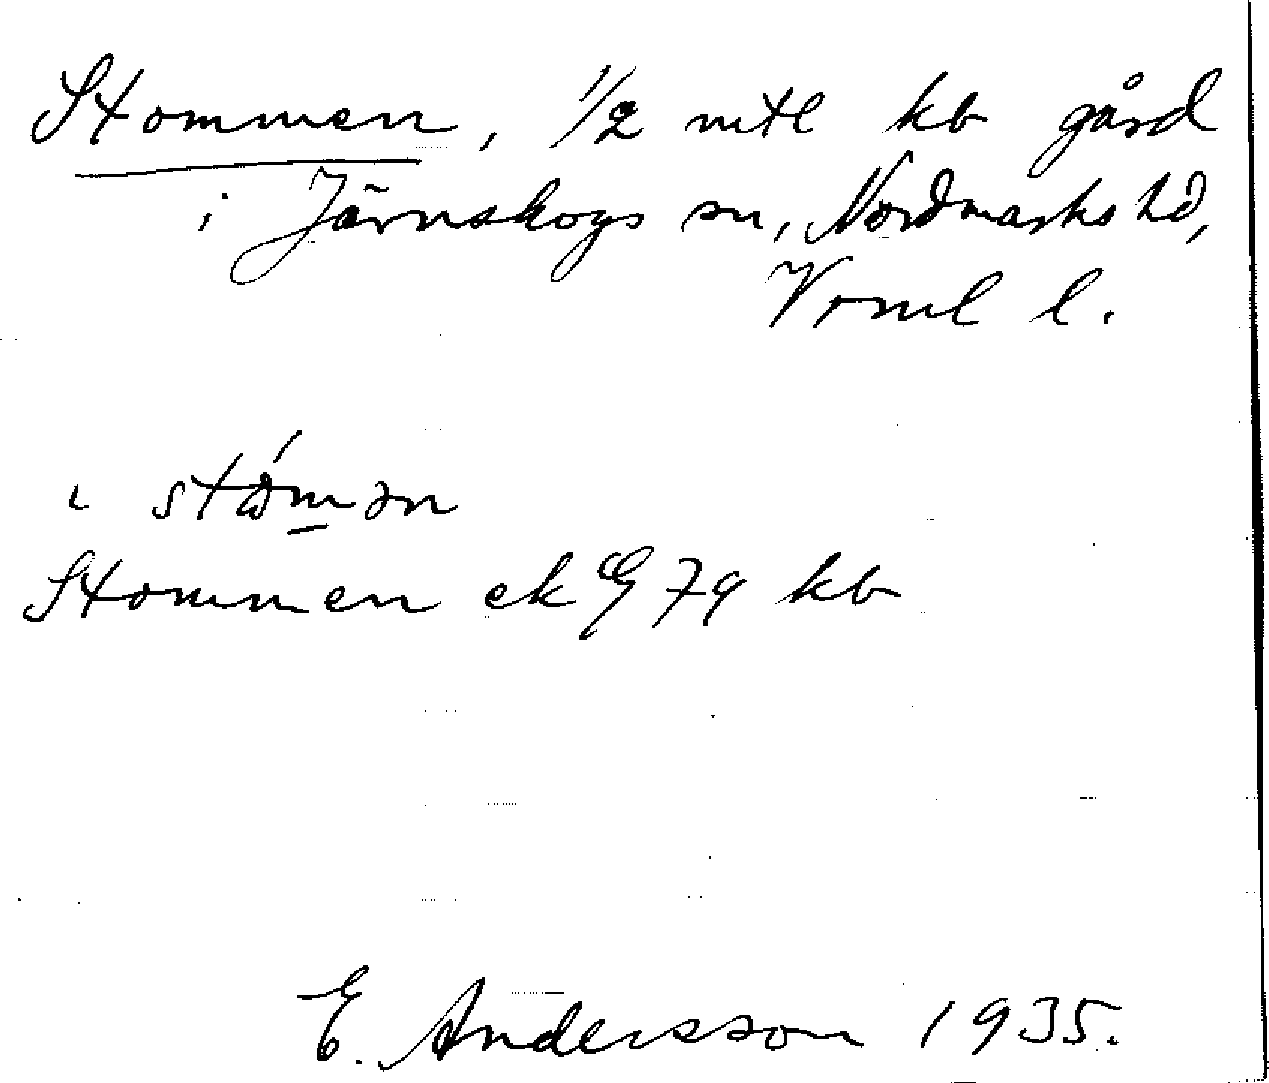 Stommen, 1/2 mtl kb gård
i Järnskogs sn, Nordmarks hd,
Vrml l.
i stǻmən
Stommen ek G 79 kb
E. Andersson 1935.